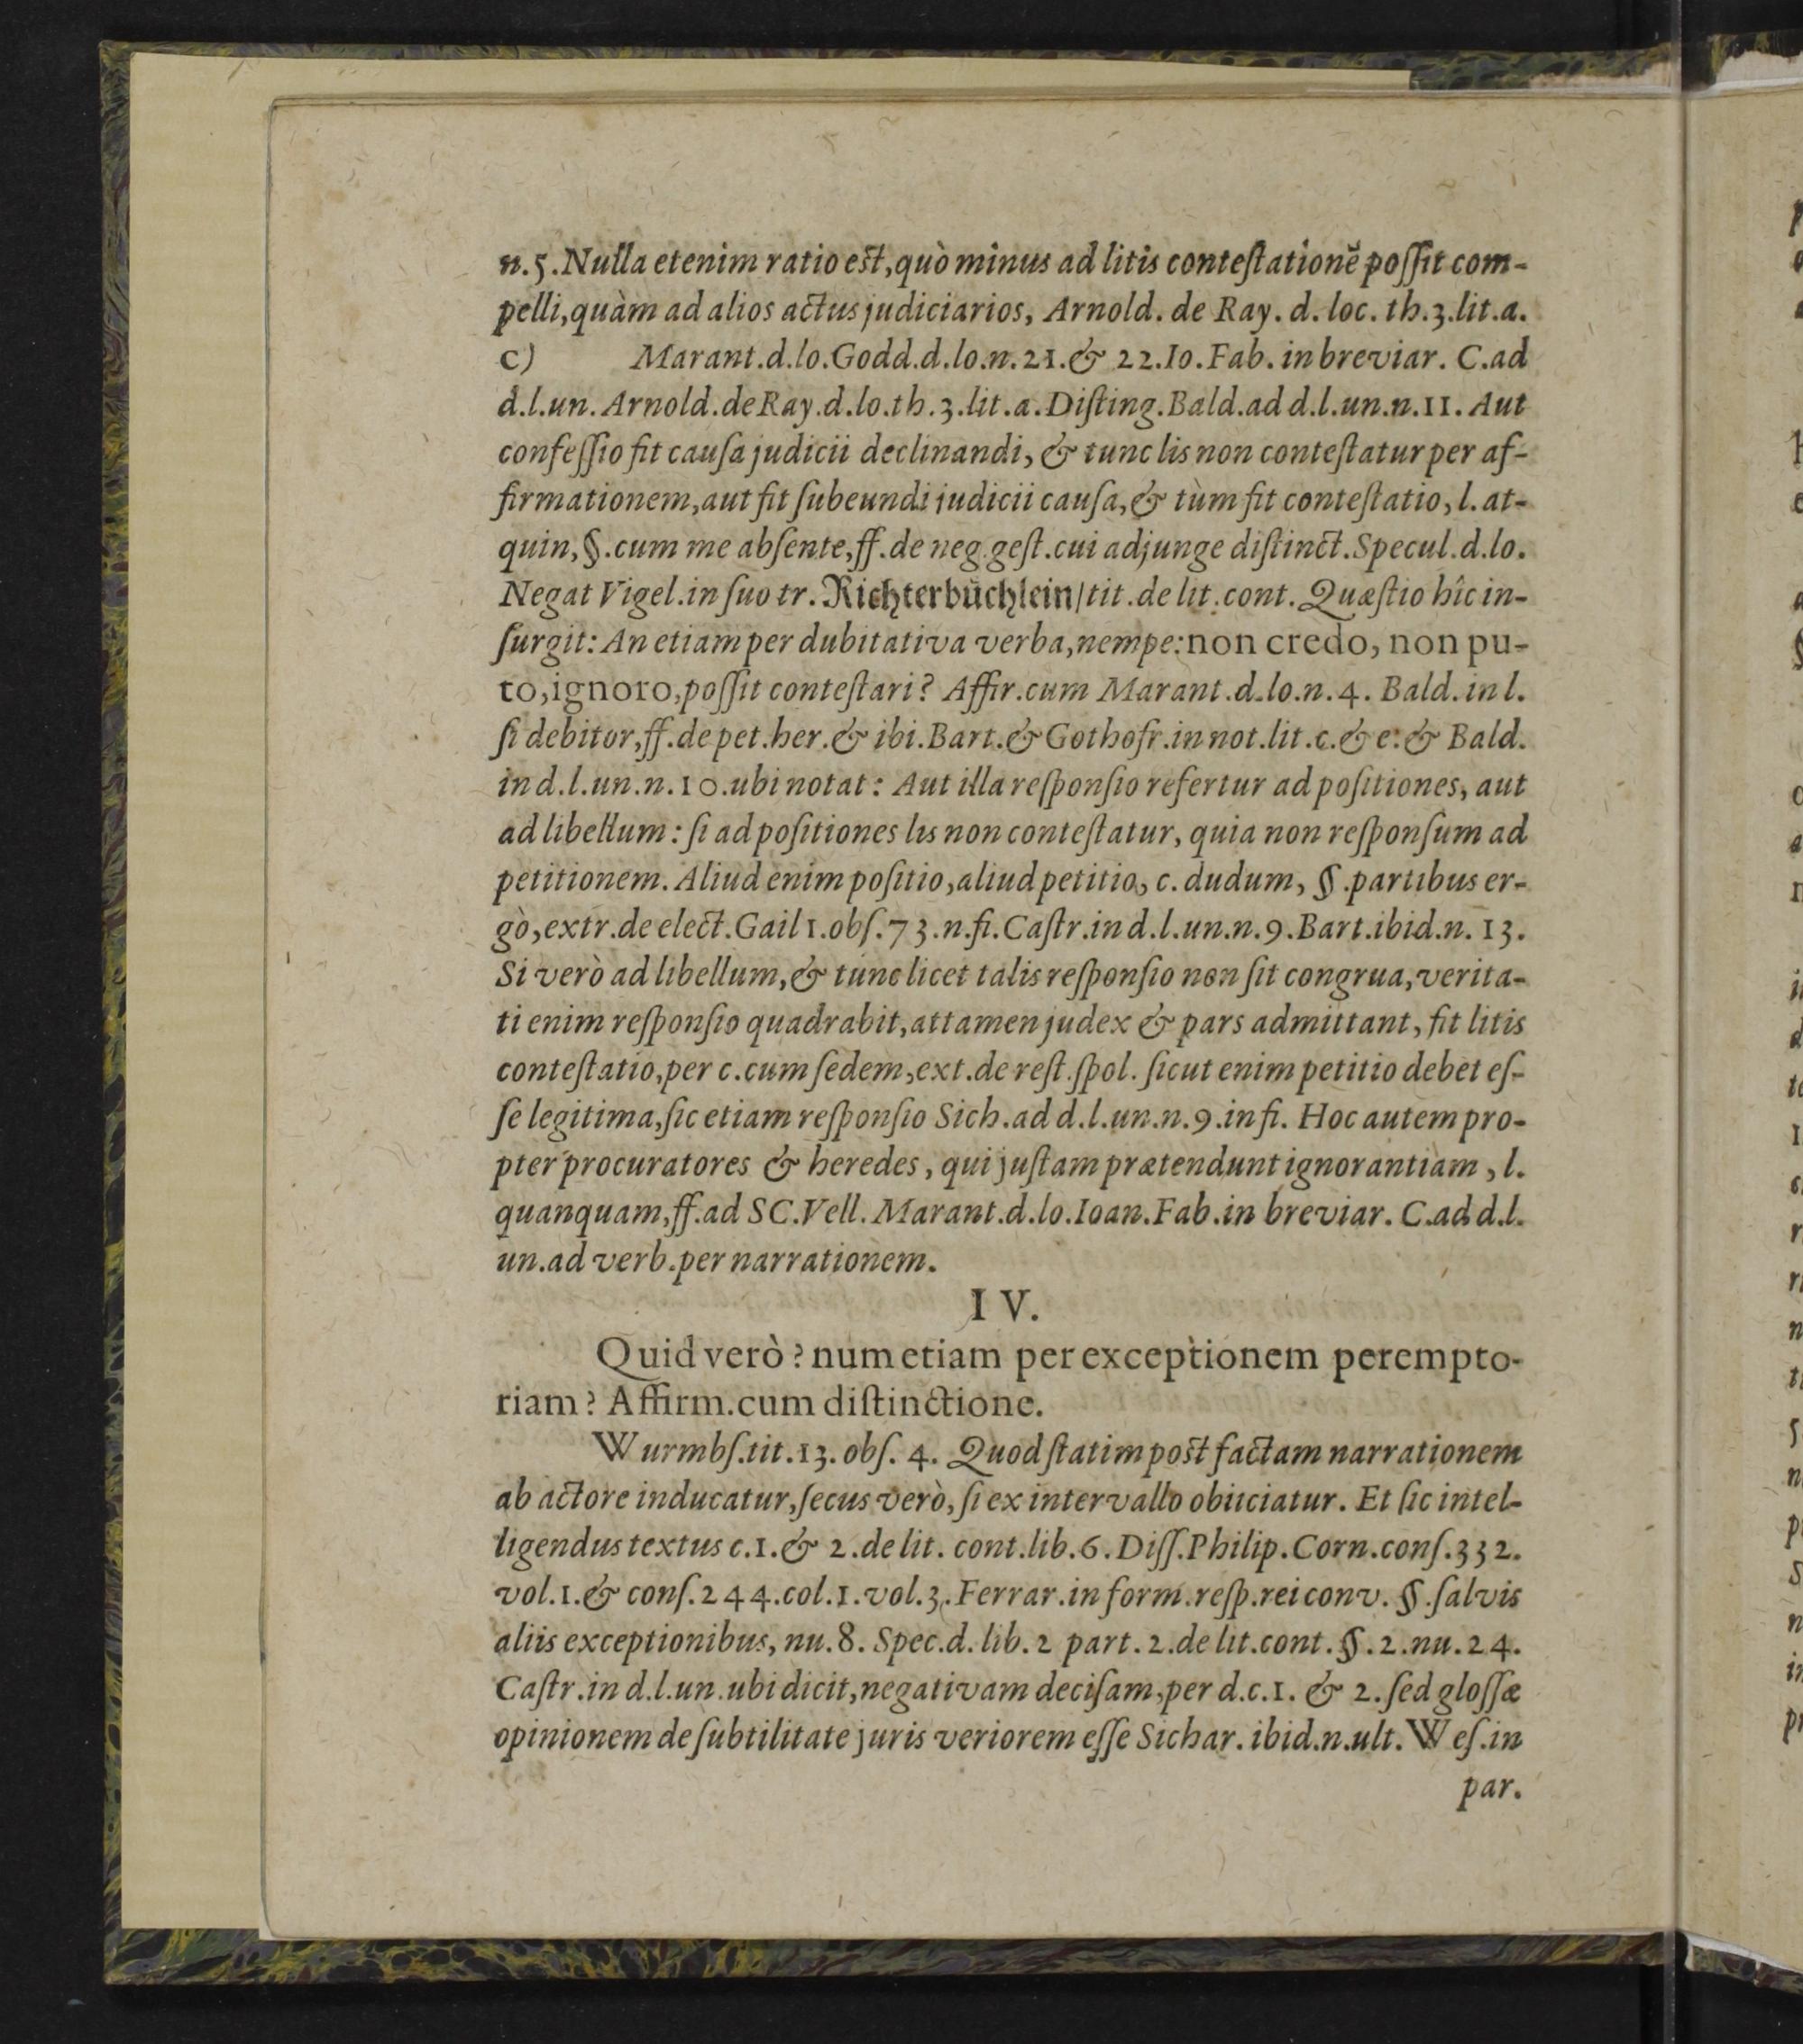 n.5.Nulla etenim ratio est,quò minus ad litis contestationẽ possit com-
pelli,quàm ad alios actus judiciarios, Arnold. de Ray. d. loc. th.3.lit.a.
c) Marant.d.lo.Godd.d.lo.n.21.& 22.Io.Fab. in breviar. C.ad
d.l.un. Arnold.de Ray.d.lo.th.3.lit.a.Disting.Bald.ad d.l.un.n.11. Aut
confessio fit causa judicii declinandi, & tunc lis non contestatur per af-
firmationem,aut fit subeundi judicii causa,& tùm fit contestatio, l. at-
quin,§.cum me absente,ff.de neg.gest.cui adjunge distinct.Specul.d.lo.
Negat Vigel.in suo tr. Richterbüchlein/tit.de lit.cont. Quæstio hîc in-
surgit: An etiam per dubitativa verba,nempe:non credo, non pu-
to,ignoro,possit contestari? Affir.cum Marant.d.lo.n.4. Bald. in l.
si debitor,ff.de pet.her.& ibi.Bart.& Gothofr.in not.lit.c.& e.& Bald.
in d.l.un.n.10.ubi notat: Aut illa responsio refertur ad positiones, aut
ad libellum: si ad positiones lis non contestatur, quia non responsum ad
petitionem. Aliud enim positio,aliud petitio, c. dudum, §.partibus er-
gò,extr.de elect.Gail 1.obs.73.n.fi.Castr.in d.l.un.n.9.Bart.ibid.n.13.
Si verò ad libellum,& tunc licet talis responsio non sit congrua,verita-
ti enim responsio quadrabit,attamen judex & pars admittant, fit litis
contestatio,per c.cum sedem,ext.de rest.spol. sicut enim petitio debet es-
se legitima,sic etiam responsio Sich.ad d.l.un.n.9.in fi. Hoc autem pro-
pter procuratores & heredes, qui justam prætendunt ignorantiam, l.
quanquam,ff.ad SC.Vell. Marant.d.lo.Ioan.Fab.in breviar. C.ad d.l.
un.ad verb.per narrationem.
IV.
Quid verò? num etiam per exceptionem perempto-
riam? Affirm.cum distinctione.
Wurmbs.tit.13. obs. 4. Quod statim post factam narrationem
ab actore inducatur,secus verò, si ex intervallo obiiciatur. Et sic intel-
ligendus textus c.1.& 2.de lit. cont.lib.6. Diss.Philip.Corn.cons.332.
vol.1.& cons.244.col.1.vol.3.Ferrar.in form.resp.rei conv. §.salvis
aliis exceptionibus, nu.8. Spec.d.lib.2 part.2.de lit.cont.§.2.nu.24.
Castr.in d.l.un.ubi dicit,negativam decisam,per d.c.1. & 2. sed glossæ
opinionem de subtilitate juris veriorem esse Sichar. ibid.n.ult. Wes.in
par.